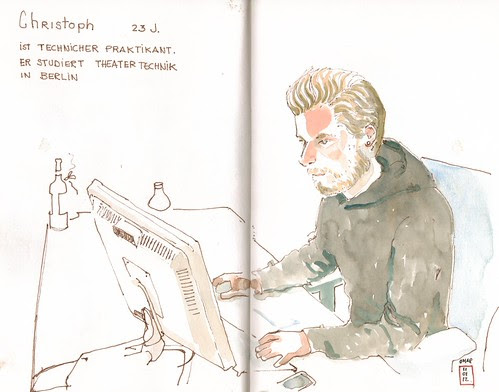 Christoph 23 J.
ist TECHNICHER PRAKTIKANT.
ER STUDIERT THEATERTECHNIK
IN BERLIN
OMAR